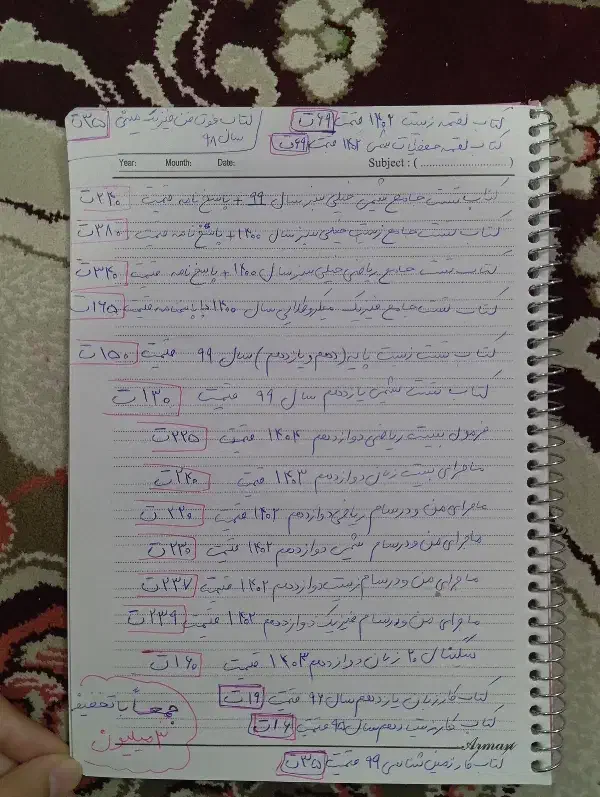 کتاب لقمه زیست ۱۴۰۲ قیمت ۶۹ت
کتاب فوق فیزیک مینی ۳۵ت
سال ۹۸
کتاب لقمه حفظیات شیمی ۱۴۰۲ قیمت ۶۹ت
Year: Mounth: Date: Subject : ( ........................... )
کتاب تست جامع شیمی خیلی سبز سال ۹۹ + پاسخ نامه قیمت ۲۴۰ت
کتاب تست جامع زیست خیلی سبز سال ۱۴۰۰ + پاسخ نامه قیمت ۳۸۰ت
کتاب تست جامع ریاضی خیلی سبز سال ۱۴۰۰ + پاسخ نامه قیمت ۳۴۰ت
کتاب تست جامع فیزیک میکرو طلایی سال ۱۴۰۰ با پاسخنامه قیمت ۱۶۵ت
کتاب تست زیست پایه (دهم و یازدهم) سال ۹۹ قیمت ۱۵۰ت
کتاب تست شیمی یازدهم سال ۹۹ قیمت ۱۳۰ت
فرمول بیست ریاضی دوازدهم ۱۴۰۴ قیمت ۲۲۵ت
ماجرای بیست زبان دوازدهم ۱۴۰۳ قیمت ۲۴۰ت
ماجرای من و درسام ریاضی دوازدهم ۱۴۰۲ قیمت ۲۲۰ت
ماجرای من و درسام شیمی دوازدهم ۱۴۰۲ قیمت ۲۳۰ت
ماجرای من و درسام زیست دوازدهم ۱۴۰۲ قیمت ۲۳۷ت
ماجرای من و درسام فیزیک دوازدهم ۱۴۰۲ قیمت ۲۳۹ت
سگنال ۲۰ زبان دوازدهم ۱۴۰۳ قیمت ۱۶۰ت
کتاب کار زبان یازدهم سال ۹۶ قیمت ۱۹ت
کتاب کار دهم سال ۹۸ قیمت ۱۶ت
جمعاً با تخفیف
۳ میلیون
Arman
کتاب کار زمین شناسی ۹۹ قیمت ۳۵ت